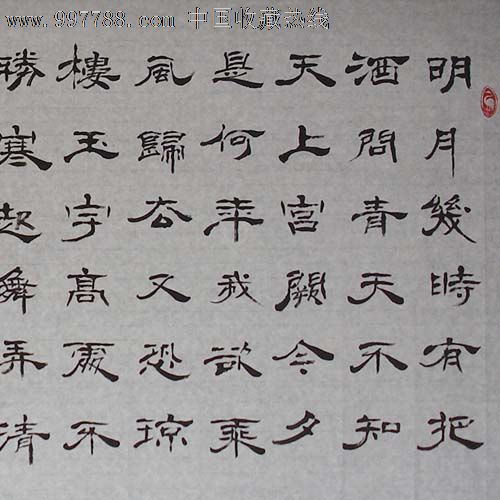 www.997788.com 中国收藏热线
明月幾時有把
酒問青天不知
天上宮闕今夕
是何年我欲乘
風歸去又恐琼
樓玉宇高處不
勝寒起舞弄清